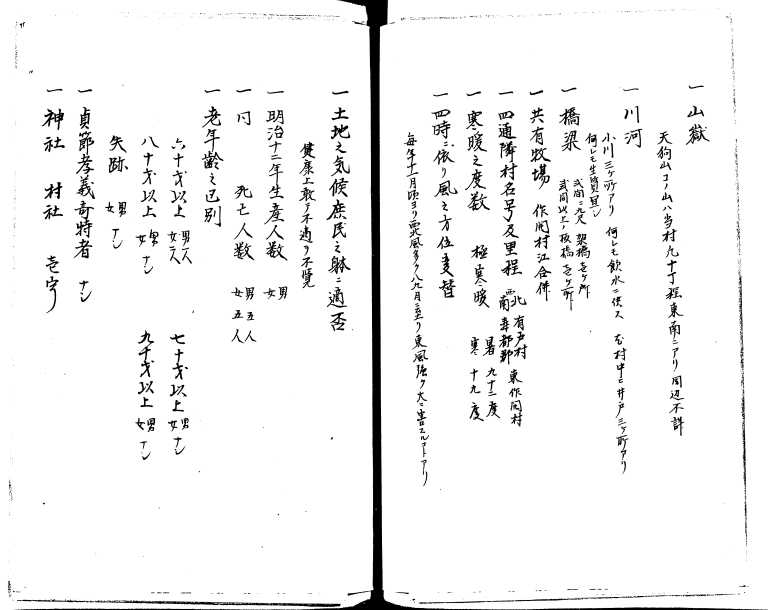 一 山嶽
天狗山コノ山ハ当村九十丁程東南ニアリ周辺不詳
一 川河
小川三ヶ所アリ 何レモ飲水ニ供ス 村中ニ井戸三ヶ所アリ
何レモ生質宜シ
一 橋梁
弐間ニ九尺 架橋壱ヶ所
弐間以上ノ板橋壱ヶ所
一 共有牧場 作開村江合併
一 四通隣村名号及里程 北 有戸村 東作開村
南 寿都郡
一 寒暖之度数 極寒暖 暑 九十二度
寒 十九度
一 四時ニ依リ風之方位変替
毎年十一月頃ヨリ西北風多ク八九月ニ至リ東風強ク大ニ害スルコトアリ
一 土地之気候庶民之躰ニ適否
健康上敢テ不適ヲ不覚
一 明治十二年生産人数 男
女
一 同 死亡人数 男五人
女五人
一 老年齢之区別
六十才以上 男一人
女六人
七十才以上 男
女 ナシ
八十才以上 男
女 ナシ
九十才以上 男
女 ナシ
矢跡 男
女 ナシ
一 貞節孝義奇特者 ナシ
一 神社 村社 壱宇